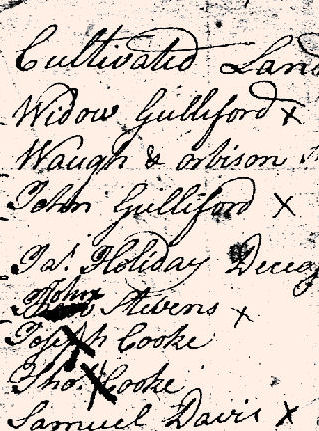 Cultivated Land
Widow Gulliford x
Waugh & orbison
John Gulliford x
Jas. Holiday Deceas
John Stevens x
Joseph Cooke
Thos. Cooke
Samuel Davis x